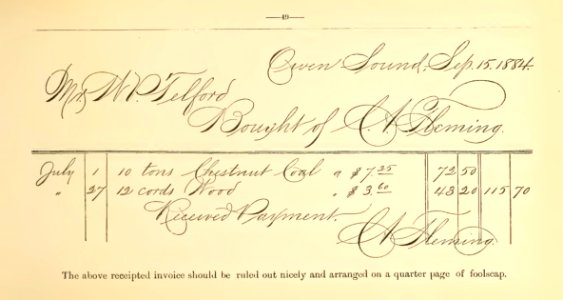 —49—
Owen Sound, Sep. 15, 1884.
Mr. W. P. Telford
Bought of C. A. Fleming.
July 1 10 tons Chestnut Coal " $7.25 72 50
" 27 12 cords Wood " $3.60 43 20 115 70
Received Payment.
C. A. Fleming.
The above receipted invoice should be ruled out nicely and arranged on a quarter page of foolscap.